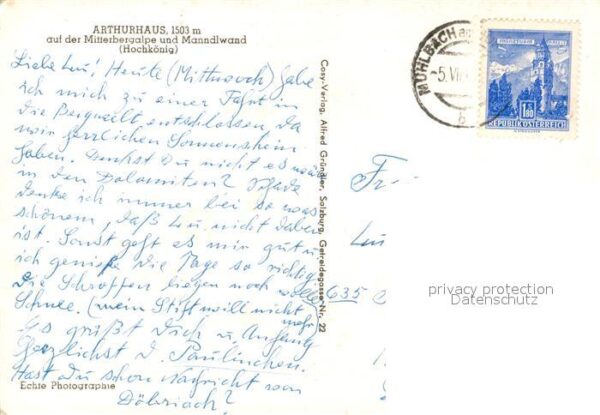 ARTHURHAUS, 1503 m
auf der Mitterbergalpe und Manndlwand
(Hochkönig)
Liebe Lu! Heute (Mittwoch) habe
ich mich zu einer Fahrt in
die Bergwelt entschlossen, da
wir herrlichen Sonnenschein
haben. Denkst Du nicht es wär
in den Dolomiten? Schade
denke ich immer bei so was
schönem, daß Lu nicht dabei
ist. Sonst geht es mir gut u.
ich genieße die Tage so richtig
Die Schroffen liegen noch voller
Schnee. (mein Stift will nicht
mehr
Es grüßt Dich u. Anhang
herzlichst D. Paulinchen.
Hast du schon Nachricht von
Döbriach?
Echte Photographie
Cosy-Verlag, Alfred Gründler, Salzburg, Getreidegasse Nr. 22
MÜHLBACH
-5. VI
b
1.80
REPUBLIK ÖSTERREICH
Fr
Lu
635
privacy protection
Datenschutz